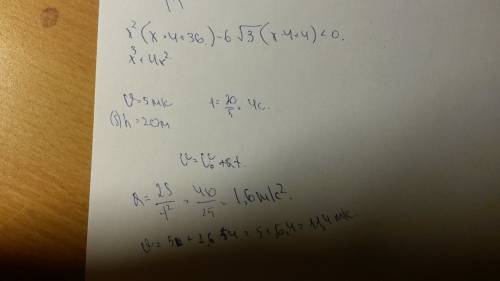 x² (x+4+36)-6√3(x·4+4)<0.
x³+4x²
υ=5м/с t=20/5=4с.
(S)h=20м
υ=υ₀+at.
a=2S/t²=40/25=1,6м/с².
υ=5+1,6·4=5+6,4=11,4 м/с